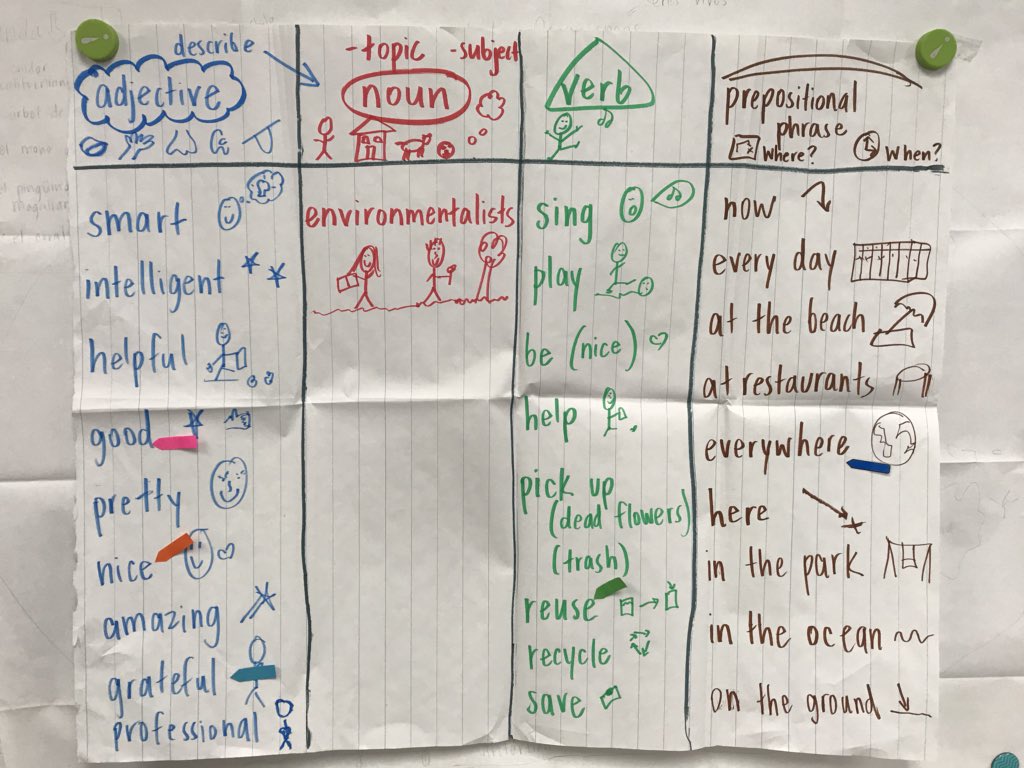 describe
adjective
-topic -subject
noun
verb
prepositional
phrase
Where? When?
smart
intelligent
helpful
good
pretty
nice
amazing
grateful
professional
environmentalists
sing
play
be (nice)
help
pick up
(dead flowers)
(trash)
reuse
recycle
save
now
every day
at the beach
at restaurants
everywhere
here
in the park
in the ocean
on the ground